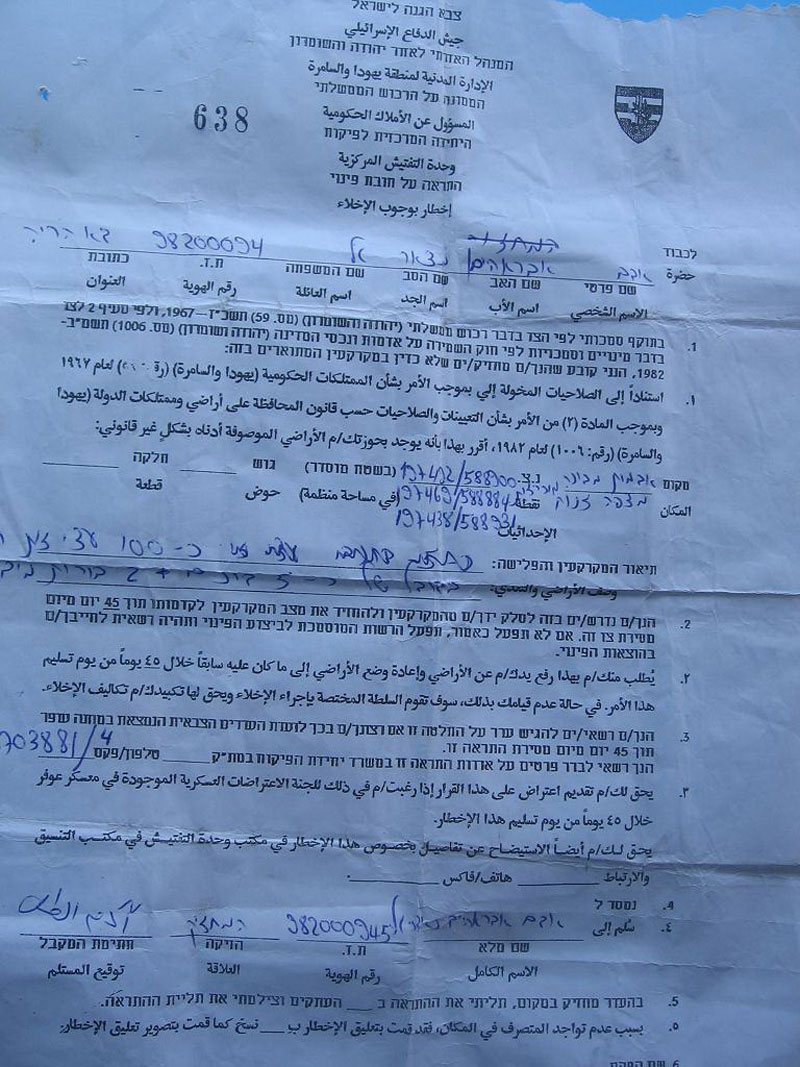 צבא הגנה לישראל
جيش الدفاع الإسرائيلي
המנהל האזרחי לאזור יהודה והשומרון
الإدارة المدنية لمنطقة يهودا والسامرة
הממונה על הרכוש הממשלתי
المسؤول عن الأملاك الحكومية
638
היחידה המרכזית לפיקוח
وحدة التفتيش المركزية
התראה על חובת פינוי
إخطار بوجوب الإخلاء
לכבוד
حضرة
אברהים 98200094
שם פרטי שם האב שם הסב שם המשפחה ת.ז. כתובת
الاسم الشخصي اسم الأب اسم الجد اسم العائلة رقم الهوية العنوان
1. בתוקף סמכותי לפי הצו בדבר רכוש ממשלתי (יהודה והשומרון) (מס. 59) תשכ"ז–1967, ולפי סעיף 2 לצו
בדבר מינויים וסמכויות לפי חוק השמירה על אדמות ונכסי המדינה (יהודה ושומרון) (מס. 1006) תשמ"ב-
1982, הנני קובע שהנך/ם מחזיק/ים שלא כדין במקרקעין המתוארים בזה:
١. استناداً إلى الصلاحيات المخولة إلي بموجب الأمر بشأن الممتلكات الحكومية (يهودا والسامرة) لعام ١٩٦٧
وبموجب المادة (٢) من الأمر بشأن التعيينات والصلاحيات حسب قانون المحافظة على أراضي وممتلكات الدولة (يهودا
والسامرة) (رقم: ١٠٠٦) لعام ١٩٨٢، أقرر بهذا بأنه يوجد بحوزتك/م الأراضي الموصوفة أدناه بشكل غير قانوني:
מקום נ.צ. 197492/588900 (בשטח מוסדר) גוש חלקה
المكان מצפה נקطة 197469/588884 (في مساحة منظمة) حوض قطعة
الإحداثيات 197438/588931
תיאור המקרקעין והפלישה: 100 עצי זית
وصف الأراضي والتعدي:
2. הנך/ם נדרש/ים בזה לסלק ידך/ם מהמקרקעין ולהחזיר את מצב המקרקעין לקדמותו תוך 45 יום מיום
מסירת צו זה. אם לא תפעל כאמור, תפעל הרשות המוסמכת לביצוע הפינוי ותהיה רשאית לחייבך/ם
בהוצאות הפינוי.
٢. يُطلب منك/م بهذا رفع يدك/م عن الأراضي وإعادة وضع الأراضي إلى ما كان عليه سابقاً خلال ٤٥ يوماً من يوم تسليم
هذا الأمر. في حالة عدم قيامك بذلك، سوف تقوم السلطة المختصة بإجراء الإخلاء ويحق لها تكبيدك/م تكاليف الإخلاء.
3. הנך/ם רשאי/ים להגיש ערר על החלטה זו אם רצתנך/ם בכך לועדת העררים הצבאית הנמצאת במחנה עופר
תוך 45 יום מיום מסירת התראה זו.
הנך רשאי לברר פרטים על אודות התראה זו במשרד יחידת הפיקוח במת"ק טלפון/פקס 703881/4
٣. يحق لك/م تقديم اعتراض على هذا القرار إذا رغبت/م في ذلك للجنة الاعتراضات العسكرية الموجودة في معسكر عوفر
خلال ٤٥ يوماً من يوم تسليم هذا الإخطار.
يحق لـك/م أيضاً الاستيضاح عن تفاصيل بخصوص هذا الإخطار في مكتب وحدة التفتيش في مكتب التنسيق
والارتباط هاتف/فاكس
4. נמסר ל
٤. سُلم إلى אברהים 982000945 המחזיק
שם מלא ת.ז. הזיקה חתימת המקבל
الاسم الكامل رقم الهوية العلاقة توقيع المستلم
5. בהעדר מחזיק במקום, תליתי את ההתראה ב העתקים וצילמתי את תליית ההתראה.
٥. بسبب عدم تواجد المتصرف في المكان، فقد قمت بتعليق الإخطار ب نسخ كما قمت بتصوير تعليق الإخطار.